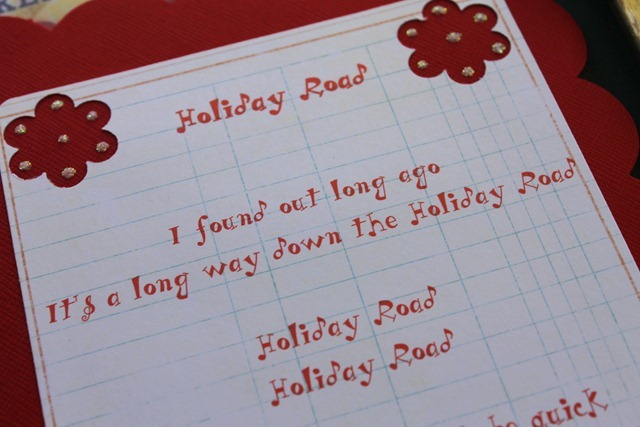 Holiday Road
I found out long ago
It's a long way down the Holiday Road
Holiday Road
Holiday Road
quick